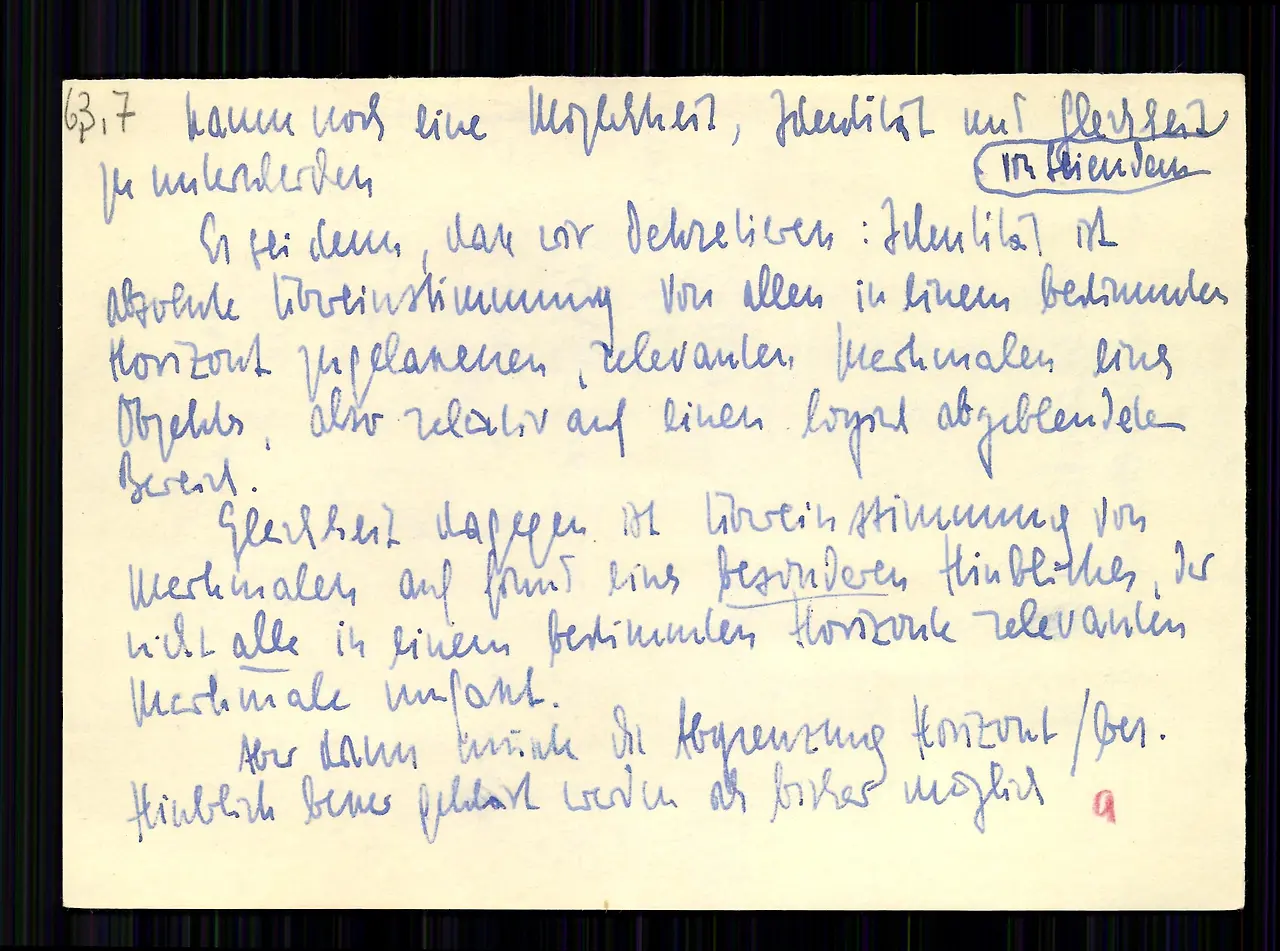 63,7 kaum noch eine Möglichkeit, Identität und Gleichheit
von Seiendem
zu unterscheiden
Es sei denn, dass wir dekretieren: Identität ist
absolute Übereinstimmung von allen in einem bestimmten
Horizont zugelassenen, relevanten Merkmalen eines
Objekts, also relativ auf einen logisch abgeblendeten
Bereich.
Gleichheit dagegen ist Übereinstimmung von
Merkmalen auf Grund eines besonderen Hinblickes, der
nicht alle in einem bestimmten Horizonte relevanten
Merkmale umfasst.
Aber dann müsste die Abgrenzung Horizont / bes.
Hinblick besser geklärt werden als bisher möglich
9